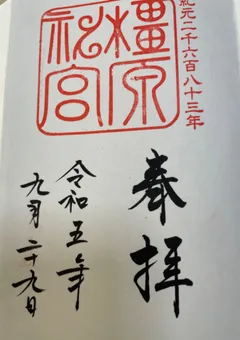 紀元二千六百八十三年
橿原神宮
奉拝
令和五年
九月二十九日